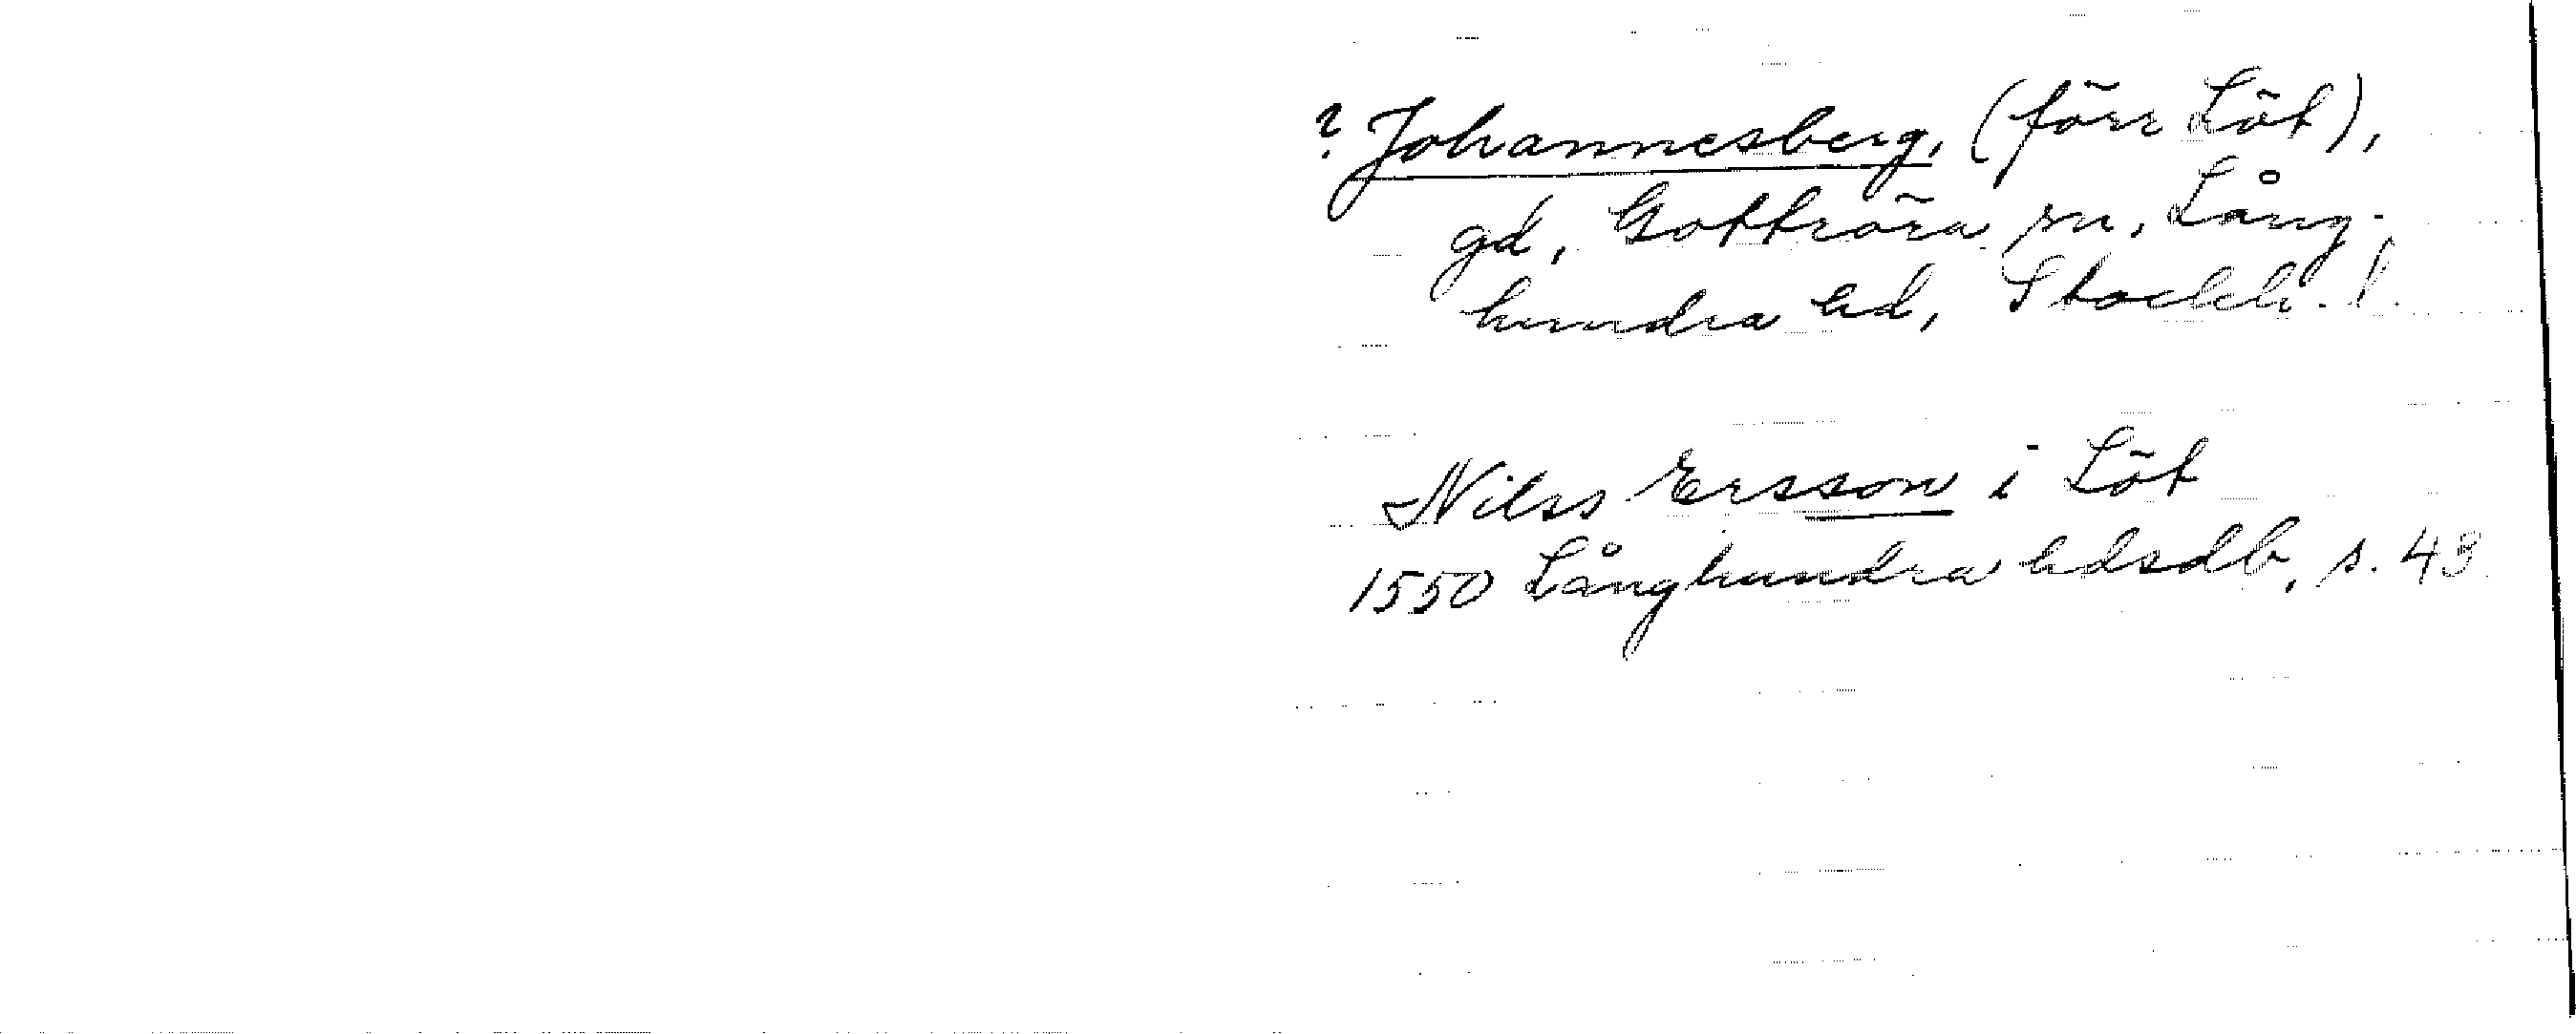 ? Johannesberg, (förr Löt),
gd, Gottröra sn, Lång-
hundra hd, Stockh. l.
Nilss Ersson i Löt
1550 Långhundra hdsdb, s. 43